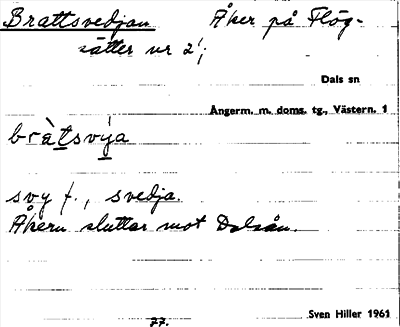 Brattsvedjan Åker på Flög-
sätter nr 2¹;
Dals sn
Ångerm. m. doms. tg., Västern. 1
bràtsvýa
svy f., svedja.
Åkern sluttar mot Dalsån.
77. Sven Hiller 1961